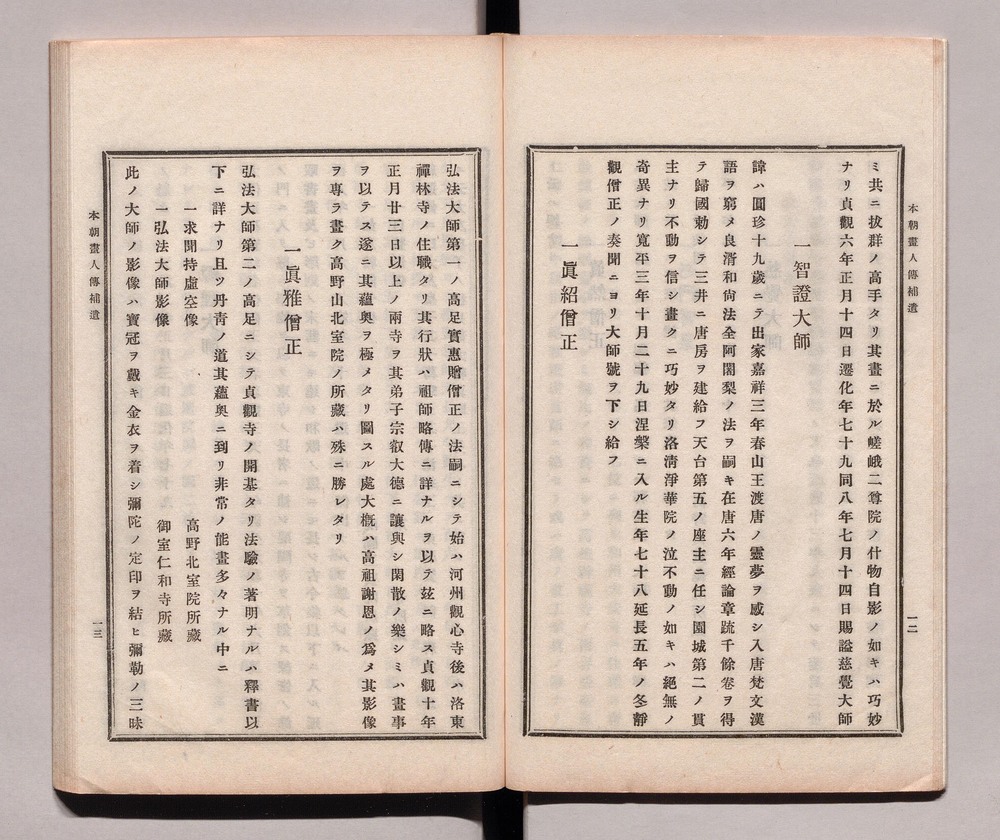 本朝畫人傳補遺
一二
ミ共ニ拔群ノ高手タリ其畫ニ於ル嵯峨二尊院ノ什物自影ノ如キハ巧妙
ナリ貞觀六年正月十四日遷化年七十九同八年七月十四日賜謚慈覺大師
一智證大師
諱ハ圓珍十九歲ニテ出家嘉祥三年春山王渡唐ノ靈夢ヲ感シ入唐梵文漢
語ヲ窮メ良湑和尙法全阿闍梨ノ法ヲ嗣キ在唐六年經論章䟽千餘卷ヲ得
テ歸國勅シテ三井ニ唐房ヲ建給フ天台第五ノ座主ニ任シ園城第二ノ貫
主ナリ不動ヲ信シ畫クニ巧妙タリ洛淸淨華院ノ泣不動ノ如キハ絕無ノ
奇異ナリ寬平三年十月二十九日涅槃ニ入ル生年七十八延長五年ノ冬靜
觀僧正ノ奏聞ニヨリ大師號ヲ下シ給フ
一眞紹僧正
弘法大師第一ノ高足實惠贈僧正ノ法嗣ニシテ始ハ河州觀心寺後ハ洛東
禪林寺ノ住職タリ其行狀ハ祖師略傳ニ詳ナルヲ以テ玆ニ略ス貞觀十年
正月廿三日以上ノ兩寺ヲ其弟子宗叡大德ニ讓與シ閑散ノ樂シミハ畫事
ヲ以テス遂ニ其蘊奧ヲ極メタリ圖スル處大槪ハ高祖謝恩ノ爲メ其影像
ヲ專ラ畫ク高野山北室院ノ所藏ハ殊ニ勝レタリ
一眞雅僧正
弘法大師第二ノ高足ニシテ貞觀寺ノ開基タリ法驗ノ著明ナルハ釋書以
下ニ詳ナリ且ツ丹靑ノ道其蘊奧ニ到リ非常ノ能畫多々ナル中ニ
一求聞持虛空像 高野北室院所藏
一弘法大師影像 御室仁和寺所藏
此ノ大師ノ影像ハ寶冠ヲ戴キ金衣ヲ着シ彌陀ノ定印ヲ結ヒ彌勒ノ三昧
本朝畫人傳補遺
一三